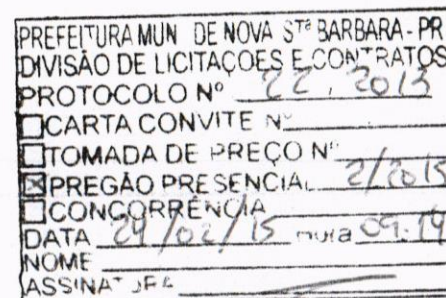 PREFEITURA MUN DE NOVA STª BARBARA - PR
DIVISÃO DE LICITAÇOES E CONTRATOS
PROTOCOLO Nº 22, 2015
CARTA CONVITE Nº
TOMADA DE PREÇO Nº
PREGÃO PRESENCIAL 2/2015
CONCORRÊNCIA
DATA 24/02/15 HORA 09:14
NOME
ASSINATURA